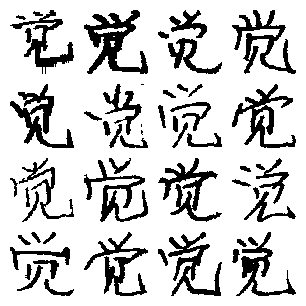 觉觉觉觉
觉觉觉觉
觉觉觉觉
觉觉觉觉